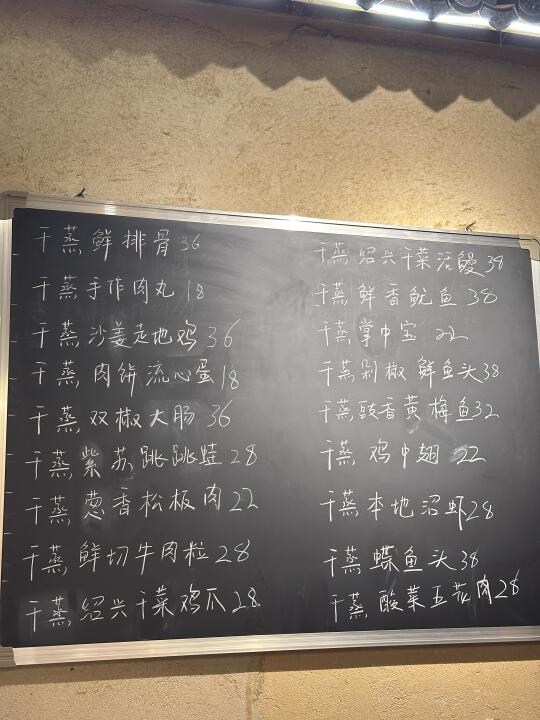 干蒸鲜排骨36
干蒸手作肉丸18
干蒸沙姜走地鸡36
干蒸肉饼流心蛋18
干蒸双椒大肠36
干蒸紫苏跳跳蛙28
干蒸葱香松板肉22
干蒸鲜切牛肉粒28
干蒸绍兴干菜鸡爪28
干蒸绍兴干菜活鳗38
干蒸鲜香鱿鱼38
干蒸掌中宝22
干蒸剁椒鲜鱼头38
干蒸豉香黄梅鱼32
干蒸鸡中翅22
干蒸本地沼虾28
干蒸蝶鱼头38
干蒸酸菜五花肉28